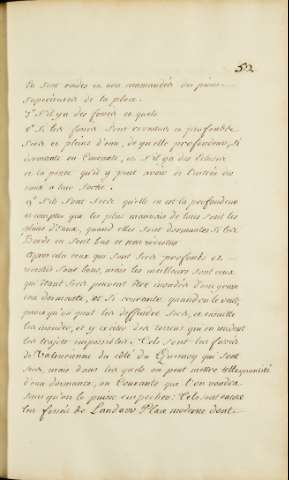 52
ils sont vuides et non commandés des pieces
superieures de la place.
7.º S'il y a des fossés et quels
8.º Si les fossés sont revetus et profonds,
secs ou pleins d'eau, de quelle profondeur, si
dormante ou Courante, et s'il y a des Ecluses
et la pente qu'il y peut avoir de l'entrée des
eaux a leur sortie.
9.º S'ils sont Secs quelle en est la profondeur
et compter que les plus mauvais de tous sont les
pleins d'Eaux, quand elles sont dormantes si les
Bords en sont bas et non revetus
Après cela ceux qui sont secs profonds et
revetus sont bons, mais les meilleurs sont ceux
qui étant secs peuvent être inondés d'une grosse
eau dormante, et si courante quand on le veut,
parce qu'on peut les deffendre secs, et ensuite
les inonder, et y exciter des torrens qui en rendent
les trajets impossibles. Tels sont les fossés
de Valencienne du côté du Quesnoy qui sont
secs, mais dans les quels on peut mettre telle quantité
d'eau dormante, ou Courante que l'on voudra
sans qu'on le puisse empecher. Tels sont encore
les fossés de Landaw Place moderne dont